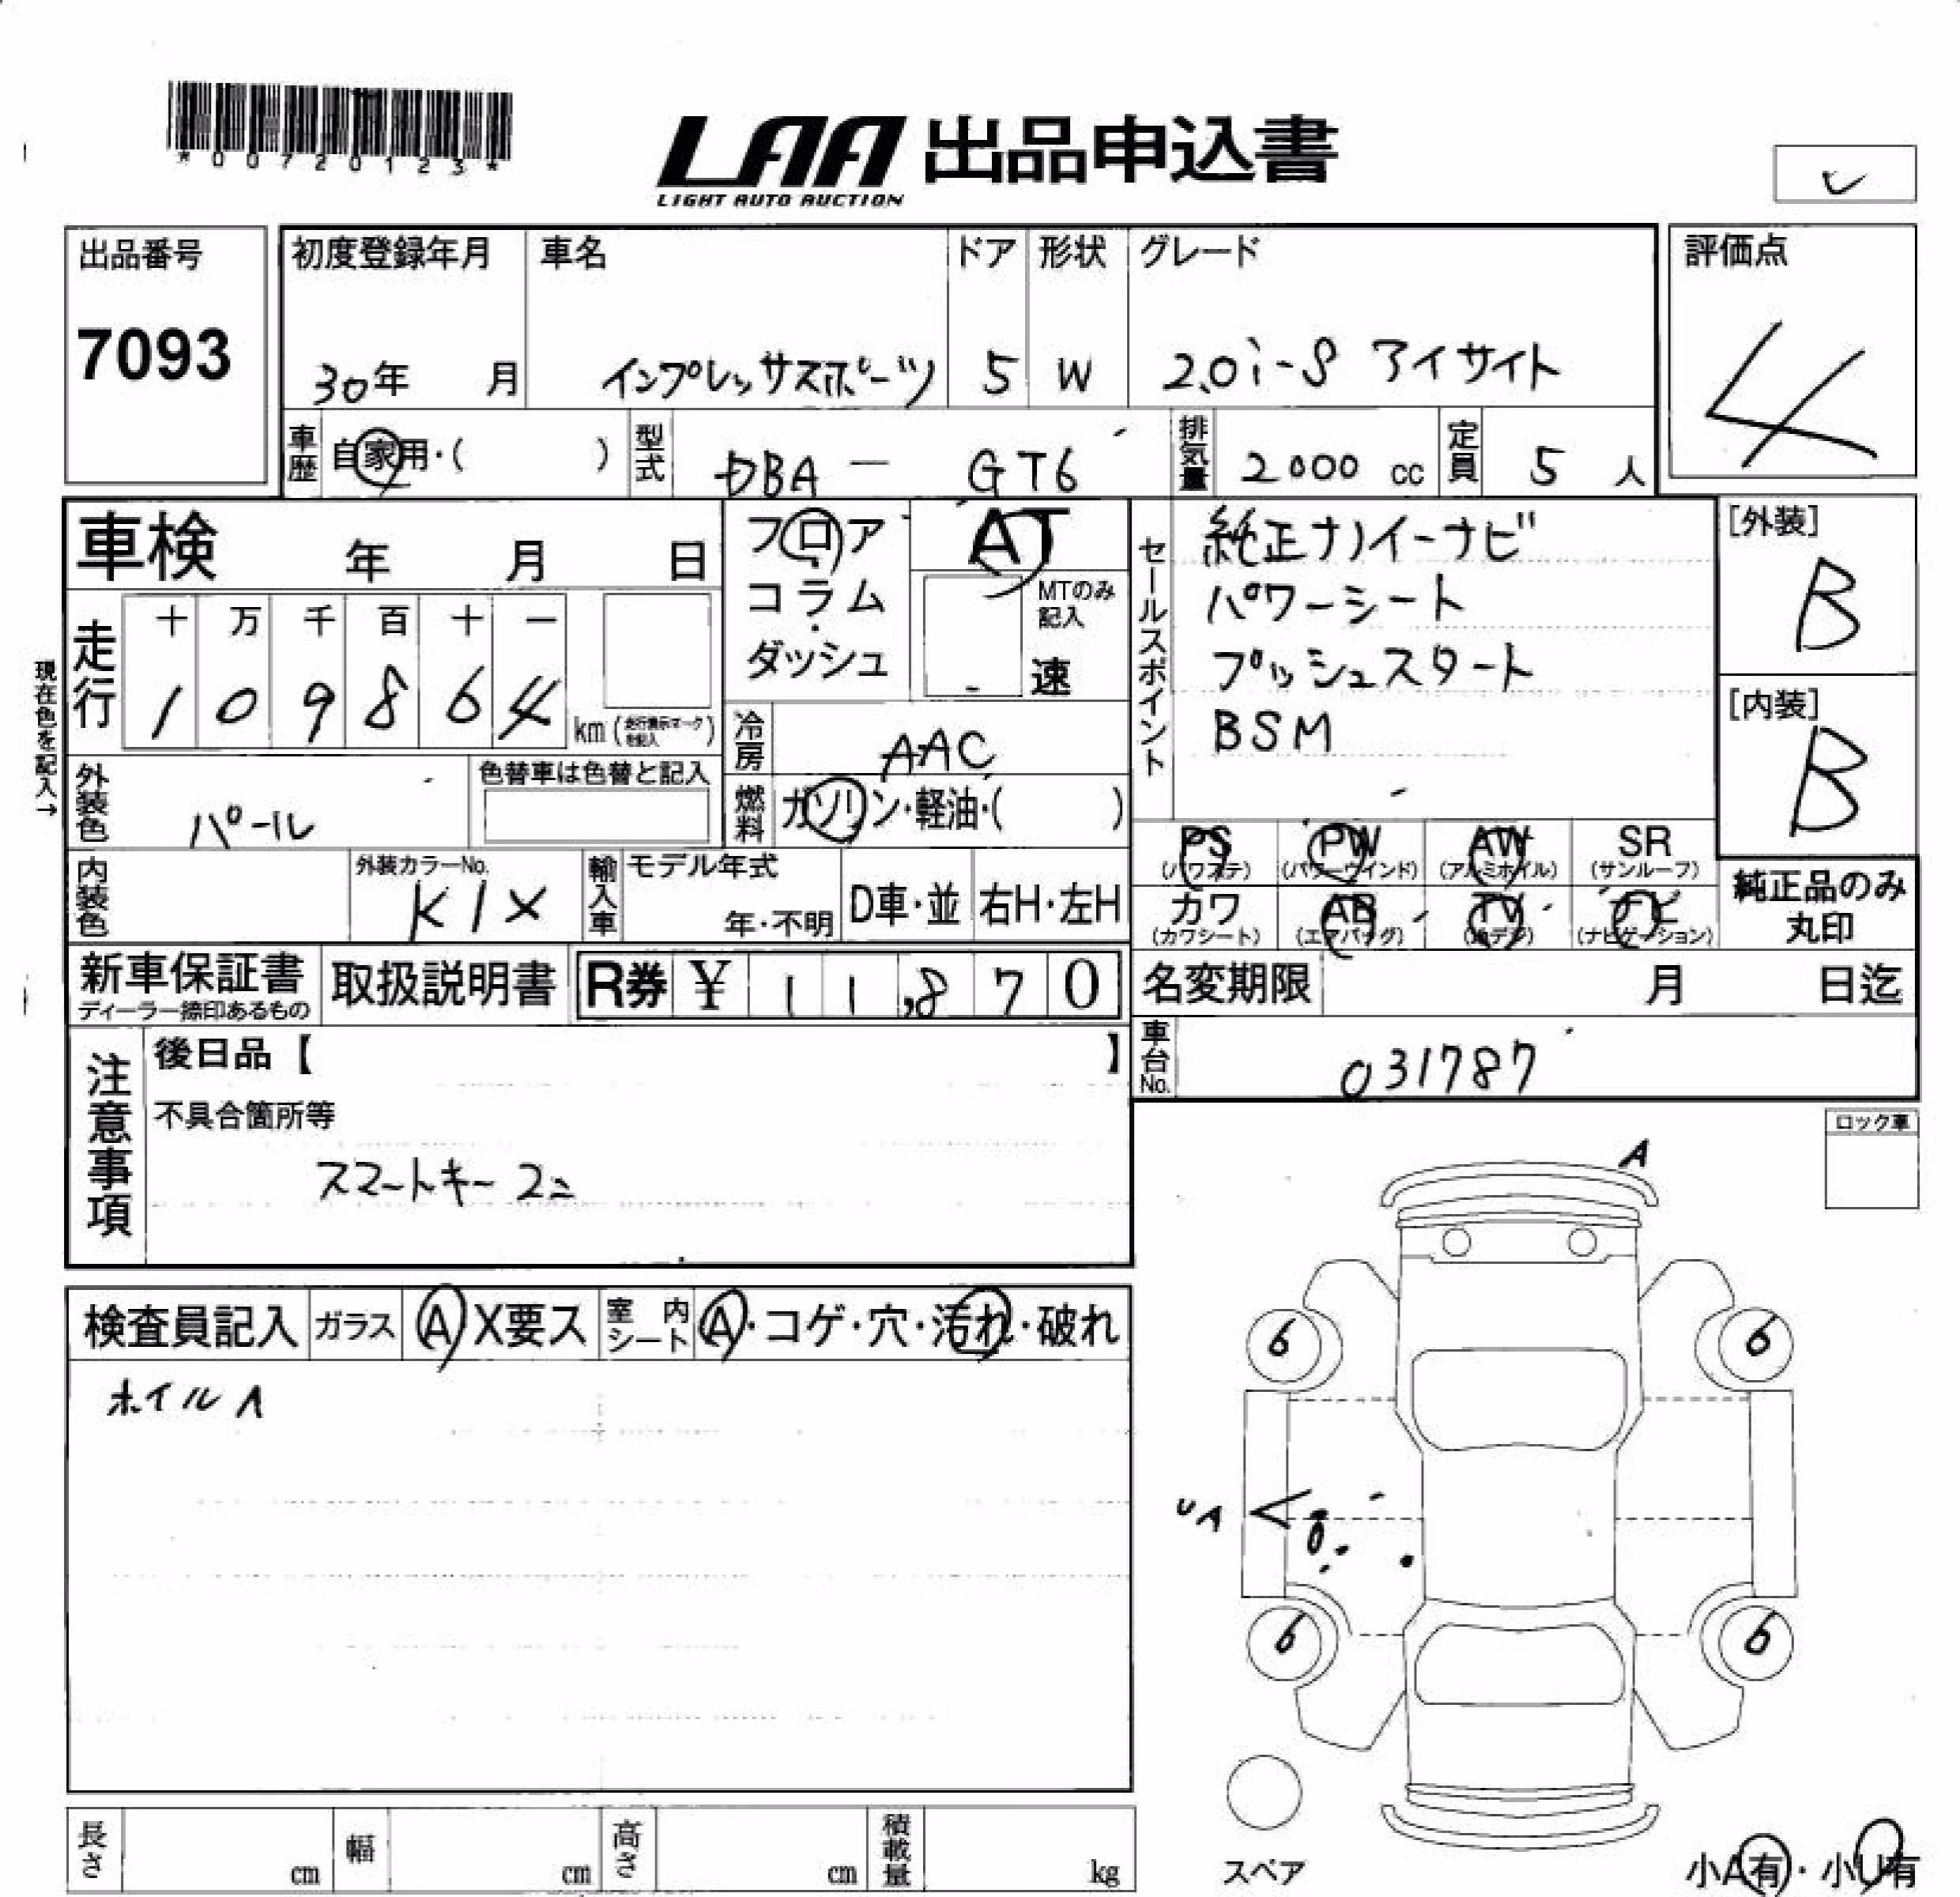 *00720123*
LAA 出品申込書
LIGHT AUTO AUCTION
出品番号
7093
初度登録年月 車名 ドア 形状 グレード
30年 月 インプレッサスポーツ 5 W 2.0i-S アイサイト
評価点
4
車歴 自家用・( ) 型式 DBA - GT6 排気量 2000 cc 定員 5 人
車検 年 月 日
フロア
・
コラム
・
ダッシュ
AT
MTのみ
記入
速
走行 十 万 千 百 十 一
1 0 9 8 6 4 km (走行表示マークを記入)
現在色を記入→
外装色 パール
色替車は色替と記入
冷房 AAC
燃料 ガソリン・軽油・( )
セールスポイント
純正ナノイーナビ
パワーシート
プッシュスタート
BSM
[外装]
B
[内装]
B
PS PW AW SR
(パワステ) (パワーウィンド) (アルミホイル) (サンルーフ)
カワ AB TV ナビ
(カワシート) (エアバッグ) (地デジ) (ナビゲーション)
純正品のみ
丸印
内装色 外装カラーNo.
K1X
輸入車 モデル年式
年・不明 D車・並 右H・左H
新車保証書
ディーラー捺印あるもの
取扱説明書 R券 ¥ 11,870
名変期限 月 日迄
車台No. 031787
注意事項
後日品【 】
不具合箇所等
スマートキー2コ
ロック車
検査員記入 ガラス A X要ス 室内シート A・コゲ・穴・汚れ・破れ
ホイルA
A
6 6
UA
6 6
スペア
小A有・小U有
長さ cm 幅 cm 高さ cm 積載量 kg